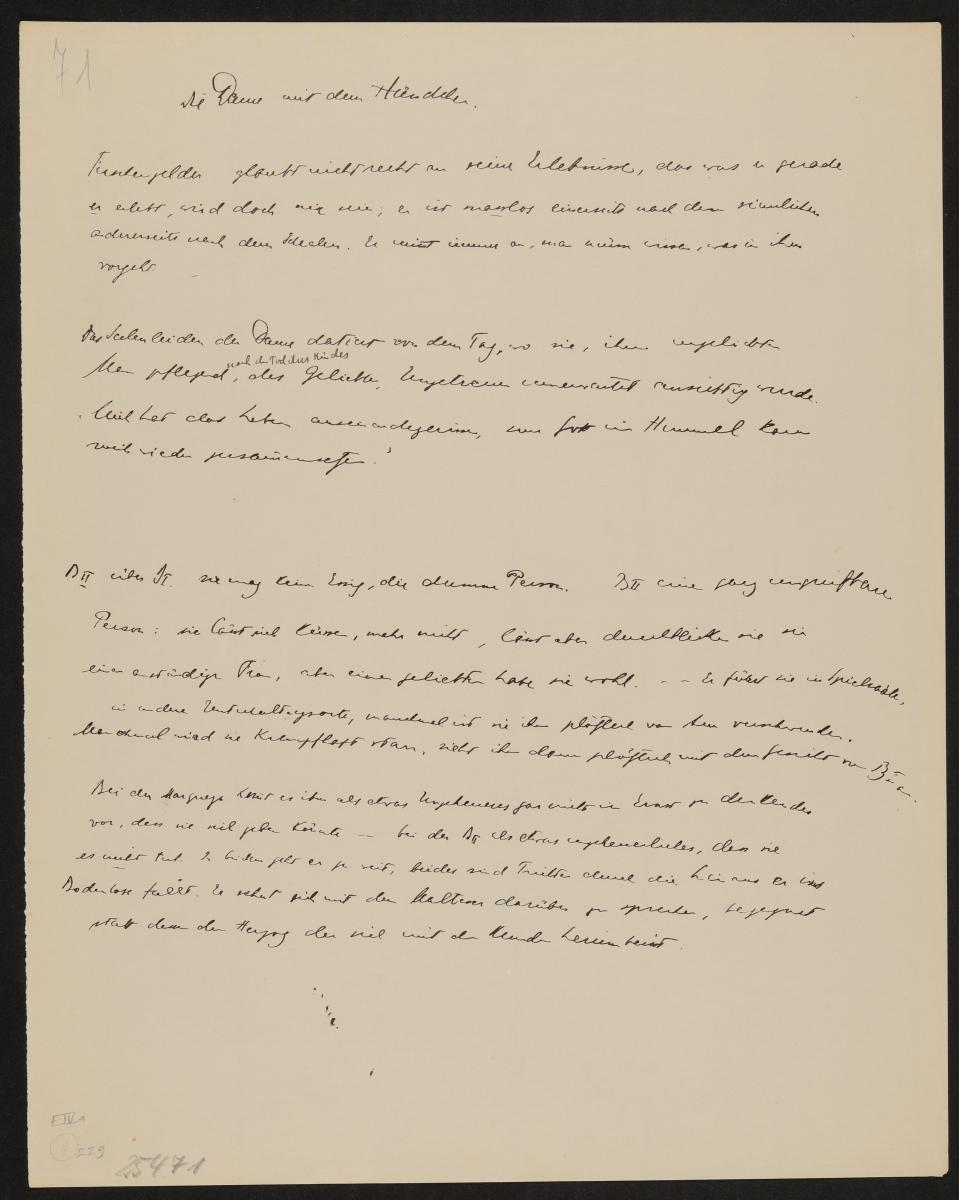 71
Die Dame mit dem Hündchen.
glaubt nicht recht an seine Erlebnisse, das was er gerade
er erlebt, wird doch nie; er ist masslos einerseits nach dem sinnlichen
andererseits nach dem Idealen. Er nimt immer an, man müsse wissen, was in ihm
vorgeht.
Das Seelenleiden der Dame datiert von dem Tag, wo sie, ihren ungeliebten
nach dem Tod des Kindes
Mann pflegend, des Geliebten Untreue unerwartet ansichtig wurde.
hat das Leben auseinandergerissen, nur Gott im Himmel kann
mich wieder zusammensetzen."
B II über B I. sie mag kein Essig, die dumme Person. B II eine ganz ungreifbare
Person: sie lässt sich küssen, mehr nicht, lässt aber durchblicken sie sei
eine anständige Frau, aber einen Geliebten habe sie wohl. – – Er führt sie in Spielsäle,
in andere Unterhaltungsorte, manchmal ist sie ihm plötzlich von dem verschwunden.
Manchmal wird sie krampfhaft starr, sieht ihn dann plötzlich mit dem Gesicht von B I an.
Bei der kommt es ihm als etwas Ungeheueres gar nicht im Ernst zu denkendes
vor, dass sie sich geben könnte — bei der B II als etwas ungeheuerliches, dass sie
es nicht tut. In beiden geht er zu weit, beides sind durch die hinaus er ins
Bodenlose fällt. Er sehnt sich mit dem Malteser darüber zu sprechen, begegnet
statt dessen dem Herzog der sich mit den Hunden
E IV A
229
25471